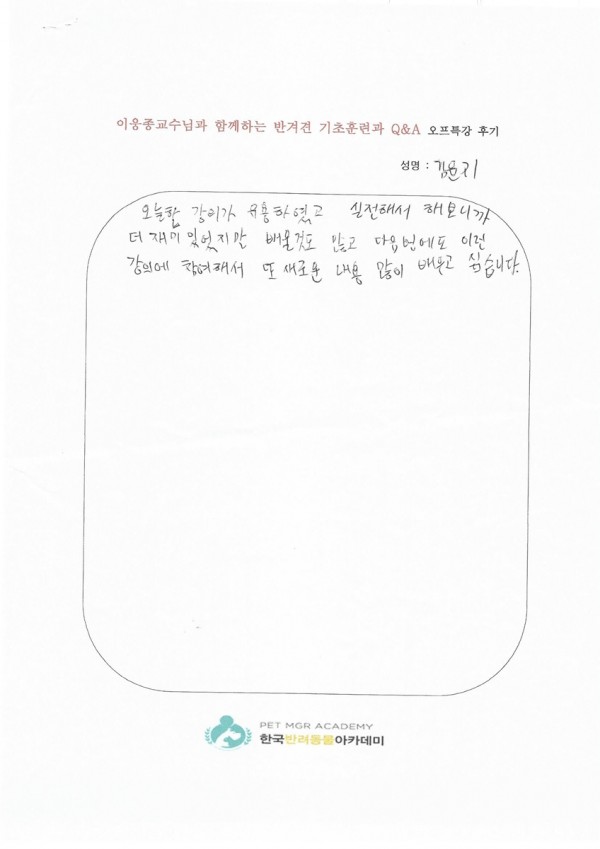 이웅종교수님과 함께하는 반겨견 기초훈련과 Q&A 오프특강 후기
성명 : 김윤지
오늘한 강의가 유용하였고 실전해서 해보니까
더 재미있었지만 배울것도 많고 다음번에도 이런
강의에 참여해서 또 새로운 내용 많이 배우고 싶습니다.
PET MGR ACADEMY
한국반려동물아카데미